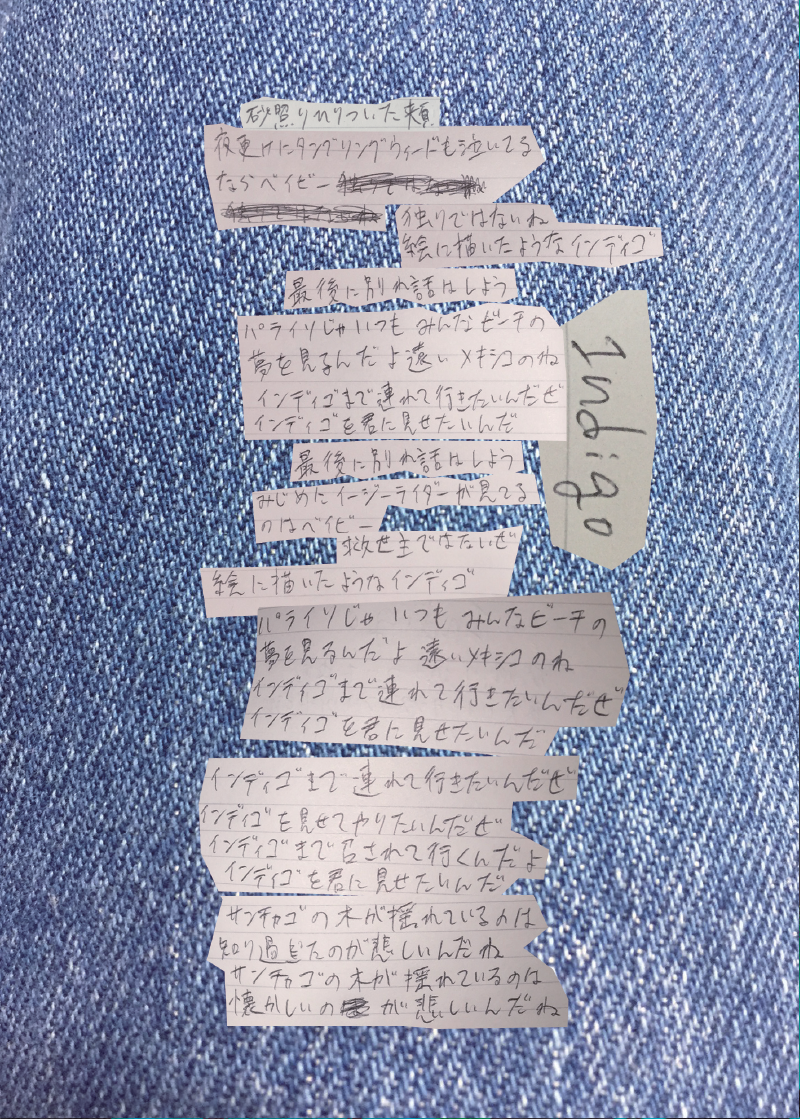 砂照りひりついた頬
夜更けにタンブリングウィードも泣いてる
ならベイビー
独りではないね
絵に描いたようなインディゴ
最後に別れ話はしよう
パライソじゃいつも みんなビーチの
夢を見るんだよ遠い メキシコのね
インディゴまで連れて行きたいんだぜ
インディゴを君に見せたいんだ
Indigo
最後に別れ話はしよう
みじめたイージーライダーが見てる
のはベイビー
救世主ではないぜ
絵に描いたようなインディゴ
パライソじゃ いつも みんなビーチの
夢を見るんだよ 遠いメキシコのね
インディゴまで連れて行きたいんだぜ
インディゴを君に見せたいんだ
インディゴまで連れて行きたいんだぜ
インディゴを見せてやりたいんだぜ
インディゴまで召されて行くんだよ
インディゴを君に見せたいんだ
サンチャゴの木が揺れているのは
知り過ぎたのが悲しいんだね
サンチャゴの木が揺れているのは
懐かしいのが悲しいんだね